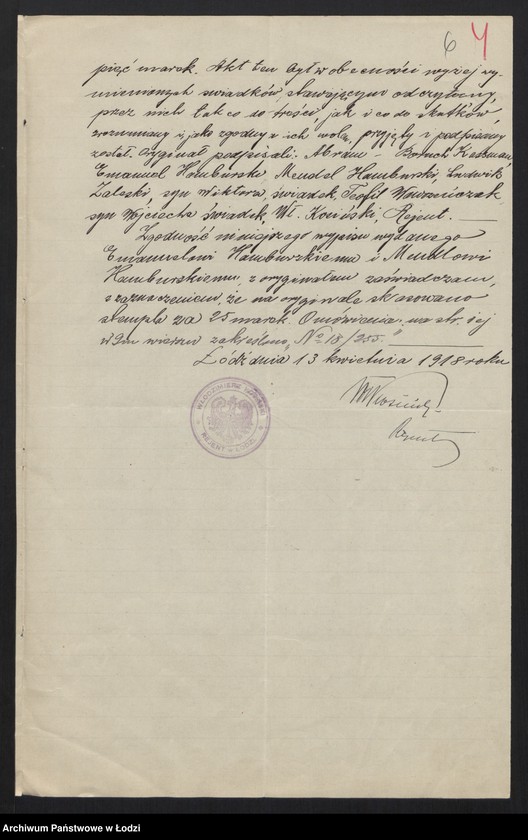 6 4
pięć marek. Akt ten był w obecności wyżej wy-
mienionych świadków, stawającym odczytany,
przez nich tak co do treści, jak i co do skutków
zrozumiany i, jako zgodny z ich wolą, przyjęty i podpisany
został. Oryginał podpisali: Abram-Boruch Kecman,
Emanuel Hamburski Mendel Hamburski Ludwik
Zaleski, syn Wiktora, świadek, Teofil Wawrzeńczak
syn Wojciecha świadek, Wł. Kosiński, Rejent.
Zgodność niniejszego wypisu wydanego
Emanuelowi Hamburskiemu i Mendlowi
Hamburskiemu, z oryginałem zaświadczam,
z zaznaczeniem, że na oryginale skasowano
stempla za 25 marek. Omówienia: na str. 1ej
w 9m wierszu zakreślono "No 18/255."
Łódź dnia 13 kwietnia 1918 roku
WKosiński
Rejent
WŁODZIMIERZ KOSIŃSKI
REJENT w ŁODZI
Archiwum Państwowe w Łodzi